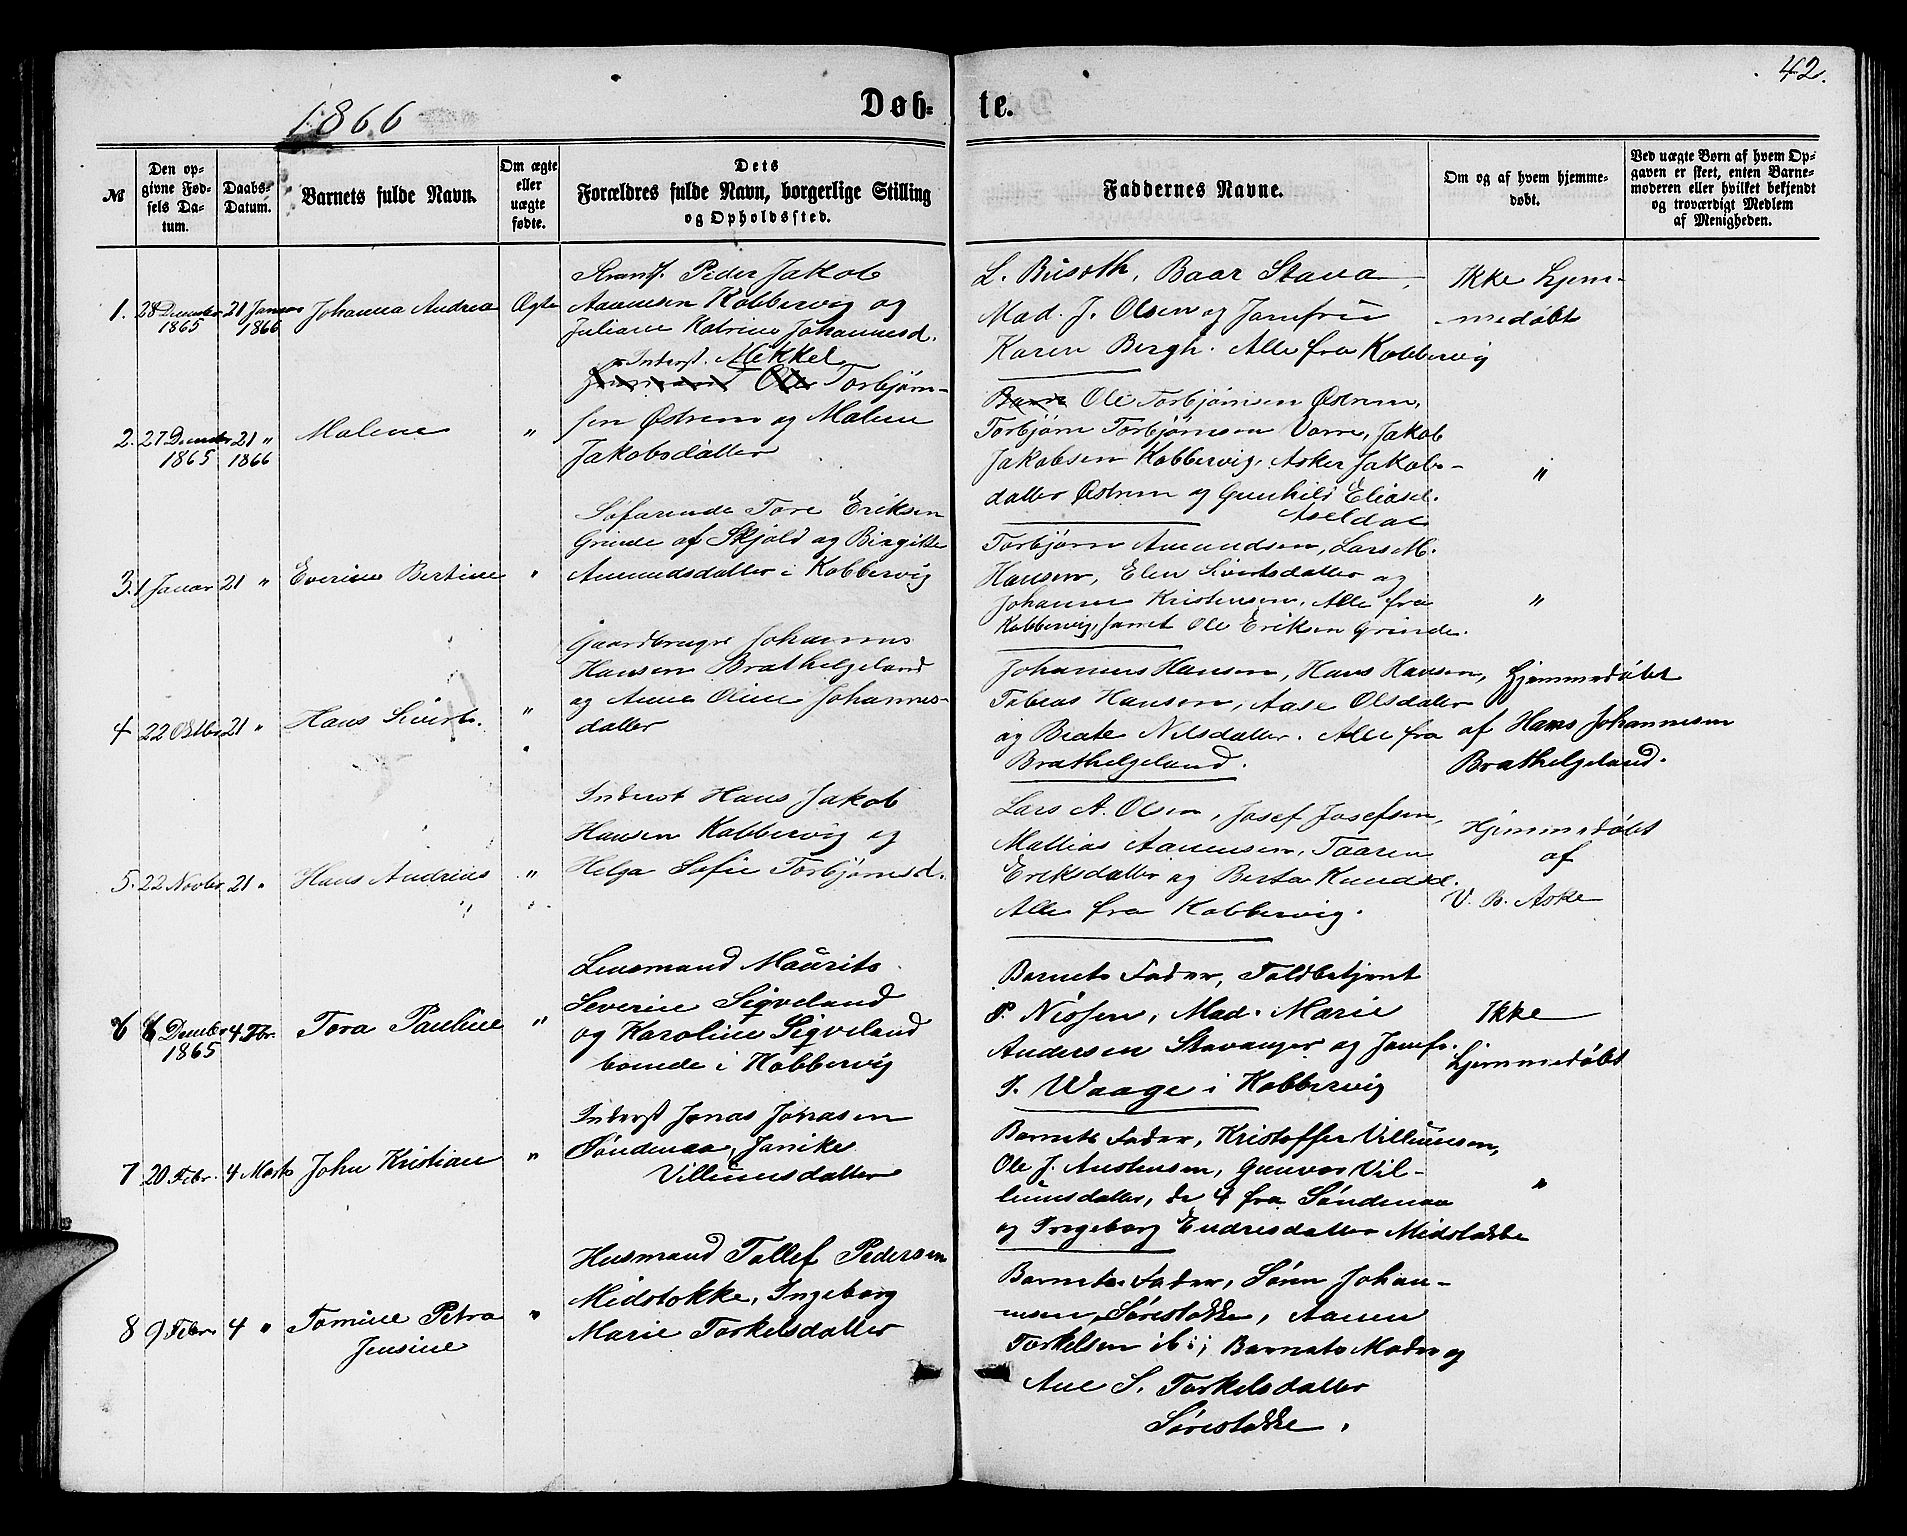 42.
1866
Døb-
te.
№
Den op-
givne Fød-
sels Da-
tum.
Daabs-
Datum.
Barnets fulde Navn.
Om ægte
eller
uægte
fødte.
Dets
Forældres fulde Navn, borgerlige Stilling
og Opholdssted.
Faddernes Navne.
Om og af hvem hjemme-
døbt.
Ved uægte Børn af hvem Op-
gaven er skeet, enten Barne-
moderen eller hvilket bekjendt
og troværdigt Medlem
af Menigheden.
1.
28 December
1865
21 Januar
1866
Johanna Andrea
Ægte
Peder Jakob
Aanensen Kobbervig og
Juliane Katrine Johannesd.
L. Baar Stava,
Mad. J. Olsen og Jomfrue
Karen Bergh. Alle fra Kobbervig
Ikke hjem-
medøbt
2.
27 Decmbr
1865
21 "
1866
Malene
"
Inderst. Mekkel
Ole Torbjørn-
sen Østrem og Malene
Jakobsdatter
Ole Torbjørnsen Østrem,
Torbjørn Torbjørnsen Vorre, Jakob
Jakobsen Kobbervig, Asker Jakobs-
datter Østrem og Gunhild Eliasd.
Aseldal
"
3.
1 Januar
21 "
Everine Bertine
"
Søfarende Tore Eriksen
Grinde af Skjold og Birgitte
Amundsdatter i Kobbervig
Torbjørn Amundsen, Lars M.
Hansen, Elen Sivertsdatter og
Johanne Kristensen, Alle fra
Kobbervig, samt Ole Eriksen Grinde.
"
4
22 Octbr
21 "
Hans Sivert.
"
Gaardbruger Johannes
Hansen Brathelgeland
og Anna Oline Johannes-
datter
Johannes Hansen, Hans Hansen,
Tobias Hansen, Aase Olsdatter
og Beate Nilsdatter. Alle fra
Brathelgeland.
Hjemmedøbt
af Hans Johannesen
Brathelgeland.
5.
22 Novbr
21 "
Hans Andreas
"
Inderst Hans Jakob
Hansen Kobbervig og
Helga Sofie Torbjørnsd.
Lars A. Olsen, Josef Josefsen,
Mathias Aanensen, Taaren
Eriksdatter og Berta Knudsd.
Alle fra Kobbervig.
Hjemmedøbt
af
V. B. Aske
6
6 Decmbr
1865
4 Fbr.
Tora Pauline
"
Lensmand Maurits
Severin Sigveland
og Karoline Sigveland
boende i Kobbervig
Barnets Fader, Toldbetjent
P. Nissen, Mad. Marie
Andersen Stavanger og Jomfr.
T. Waage i Kobbervig
Ikke
hjemmedøbt
7
20 Febr.
4 Marts
John Kristian
"
Inderst Jonas Jonasen
Søndenaa, Janike
Villumsdatter
Barnets Fader, Kristoffer Villumsen,
Ole J. Austensen, Gunvor Vil-
lumsdatter, de 4 fra Søndenaa
og Ingeborg Endresdatter Midstokke
"
8
9 Febr.
4 "
Tomine Petra
Jensine
"
Husmand Tollef Pedersen
Midstokke, Ingeborg
Marie Torkelsdatter
Barnets Fader, Søren Johan-
nesen, Sørestokke, Aanen
Torkelsen ib:, Barnets Moder og
Ane S. Torkelsdatter
Sørestokke.